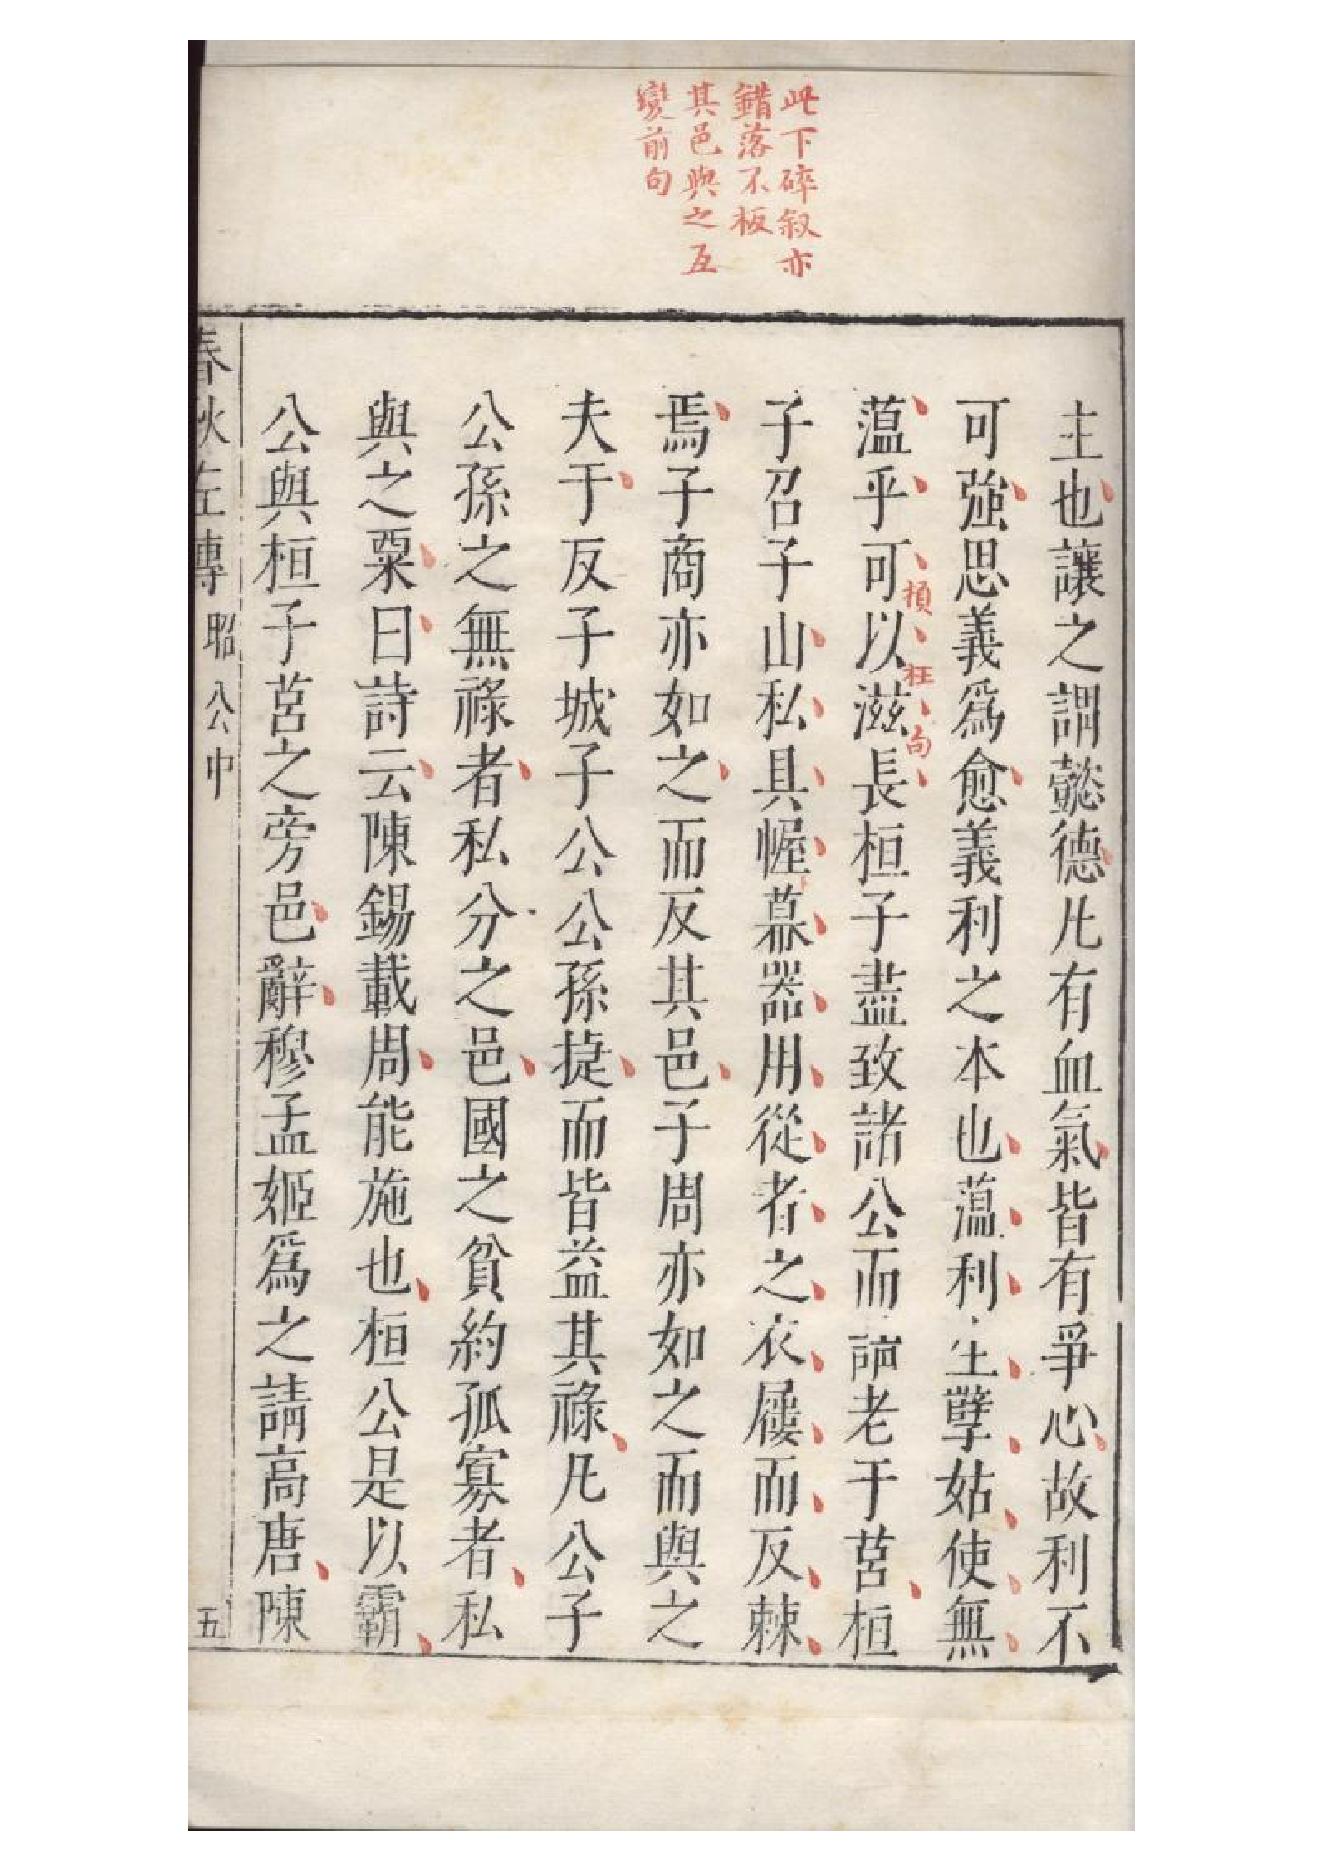 此下碎叙亦
錯落不板
其邑與之互
變前句
主也讓之謂懿德凡有血氣皆有爭心故利不
可強思義爲愈義利之本也薀利生孽姑使無
薀乎可以滋長桓子盡致諸公而請老于莒桓
損枉句
子召子山私具幄幕器用從者之衣屨而反棘
焉子商亦如之而反其邑子周亦如之而與之
夫于反子城子公公孫捷而皆益其祿凡公子
公孫之無祿者私分之邑國之貧約孤寡者私
與之粟曰詩云陳錫載周能施也桓公是以霸
公與桓子莒之旁邑辭穆孟姬爲之請高唐陳
春秋左傳 昭公中 五